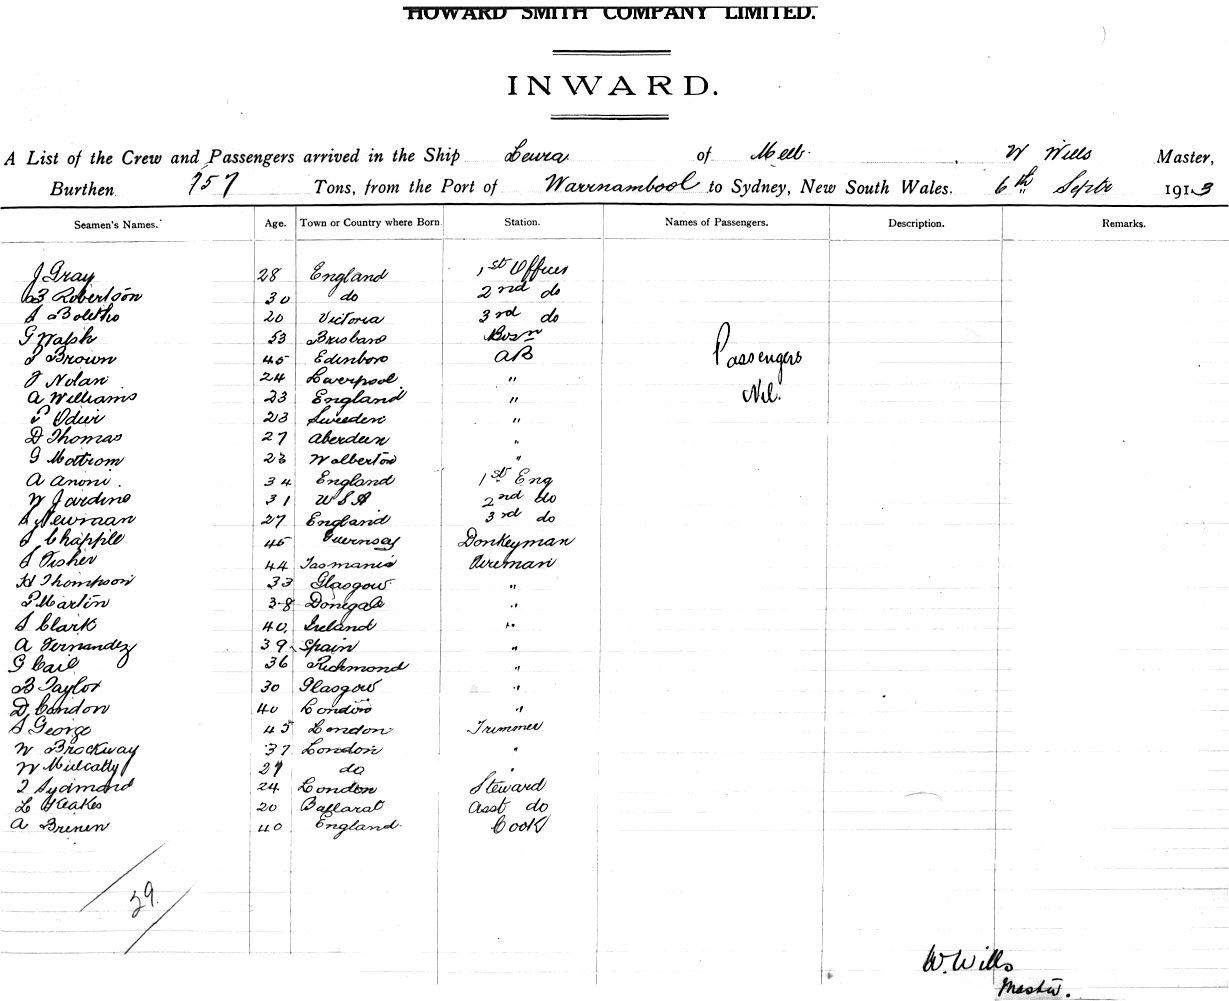 HOWARD SMITH COMPANY LIMITED.
INWARD.
A List of the Crew and Passengers arrived in the Ship Leura of Melb. W Wills Master,
Burthen 757 Tons, from the Port of Warrnambool to Sydney, New South Wales. 6th Septr 1913
Seamen's Names. Age. Town or Country where Born. Station. Names of Passengers. Description. Remarks.
J Gray 28 England 1st Officer
Robertson 30 do 2nd do
20 Victoria 3rd do
G Walsh 53 Brisbane Bosn
Brown 45 Edinboro AB
Passengers
J Nolan 24 Liverpool "
A Williams 23 England "
Nil.
23 Sweeden "
D Thomas 27 Aberdeen "
G Mottrom 23 Walberton "
A Anoni. 34 England 1st Eng
W Jardine 31 USA 2nd do
Newman 27 England 3rd do
Chapple 45 Guernsey Donkeyman
Fisher 44 Tasmania Fireman
H Thompson 33 Glasgow "
P Martin 38 Donegal "
Clark 40. Ireland "
A Fernandez 39 Spain "
G Carl 36 Richmond "
B Taylor 30 Glasgow "
D Condon 40 London "
George 45 London Trimmer
W Brockway 37 London "
W Mulcahy 27 do "
24 London Steward
L Heakes 20 Ballarat Asst do
A Brenen 40 England. Cook
29.
W. Wills
Master.